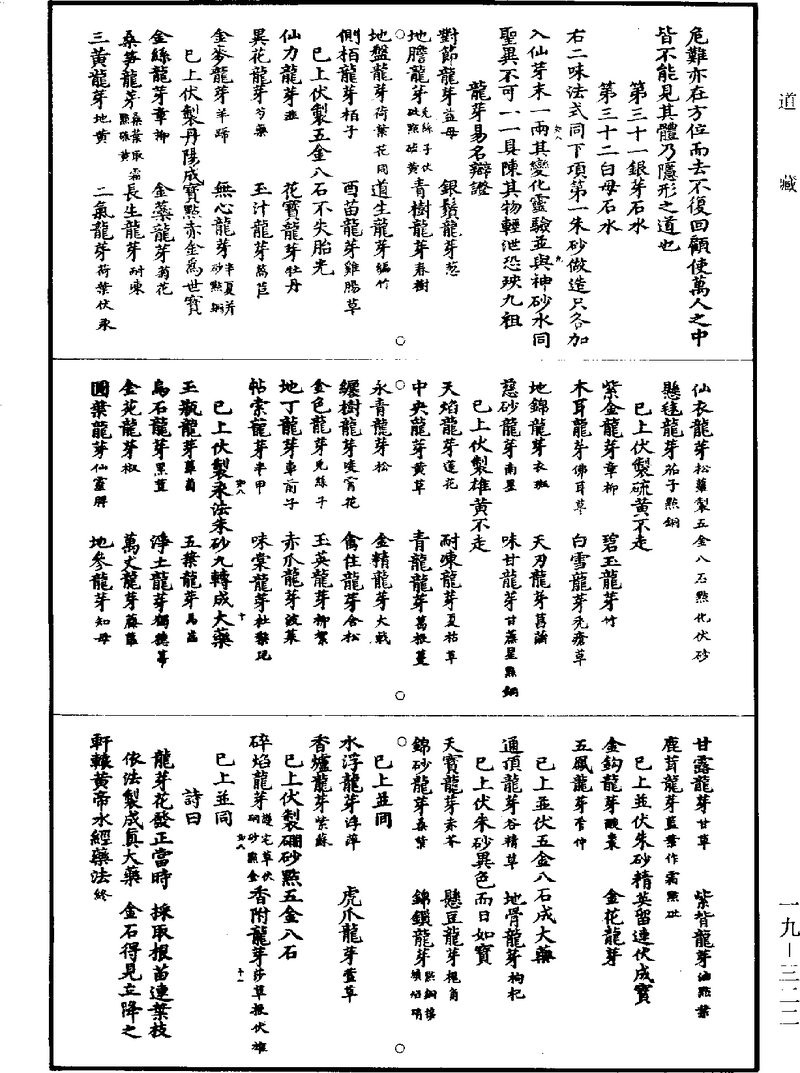 道藏
危難亦在方位而去不復回顧使萬人之中
皆不能見其體乃隱形之道也
第三十一銀芽石水
第三十二白母石水
右二味法式同下項第一朱砂做造只各加
入仙芽末一兩其變化靈驗並與神砂水同
聖異不可一一具陳其物輕泄恐殃九祖
龍芽易名辯證
對節龍芽益母 銀鬚龍芽葱
地膽龍芽兔絲子伏砒點硫黃 青樹龍芽春樹
地盤龍芽荷葉花同 道生龍芽編竹
側栢龍芽栢子 酉苗龍芽雞腸草
已上伏製五金八石不失胎光
仙力龍芽 花寶龍芽牡丹
異花龍芽芍藥 玉汁龍芽萵苣
金麥龍芽羊蹄 無心龍芽半夏芥砂點銅
已上伏製丹陽成寶點赤金為世寶
金絲龍芽章柳 金蘂龍芽菊花
桑笋龍芽桑葉取霜點硃黃 長生龍芽耐凍
三黃龍芽地黃 二氣龍芽荷葉伏汞
仙衣龍芽松蘿製五金八石點化伏砂
懸毬龍芽茄子點銅
已上伏製硫黃不走
紫金龍芽章柳 碧玉龍芽竹
木耳龍芽佛耳草 白雪龍芽禿瘡草
地錦龍芽衣班 天刃龍芽菖蒲
慈砂龍芽南星 味甘龍芽甘蔗星點銅
已上伏製雄黃不走
天焰龍芽蓮花 耐凍龍芽夏枯草
中央龍芽黃草 青龍龍芽葛根蔓
永青龍芽松 金精龍芽大戟
纏樹龍芽凌霄花 禽住龍芽含松
金色龍芽兔絲子 玉英龍芽柳絮
地丁龍芽車前子 赤爪龍芽波菜
帖索龍芽半甲 味棠龍芽杜棃兒
已上伏製汞法朱砂九轉成大藥
玉瓶龍芽蘿蔔 五葉龍芽馬齒
烏石龍芽黑荳 淨土龍芽獨掃箒
金苑龍芽椒 萬丈龍芽藤蘿
圓葉龍芽仙靈脾 地參龍芽知母
甘露龍芽甘草 紫背龍芽油點葉
鹿茸龍芽藍葉作霜點砒
已上並伏朱砂精英留連伏成寶
金鈎龍芽酸棗 金花龍芽
五鳳龍芽管仲
已上並伏五金八石成大藥
通頂龍芽谷精草 地骨龍芽枸杞
已上伏朱砂異色而日如寶
天寶龍芽赤芩 懸豆龍芽槐角
錦砂龍芽桑葉 錦鎖龍芽
已上並同
水浮龍芽浮萍 虎爪龍芽萱草
香爐龍芽紫蘇
已上伏製硇砂點五金八石
碎焰龍芽護宅草伏硇砂點金 香附龍芽莎草根伏雄
已上並同
詩曰
龍芽花發正當時 採取根苗連葉枝
依法製成真大藥 金石得見立降之
軒轅黃帝水經藥法終
一九-三二二